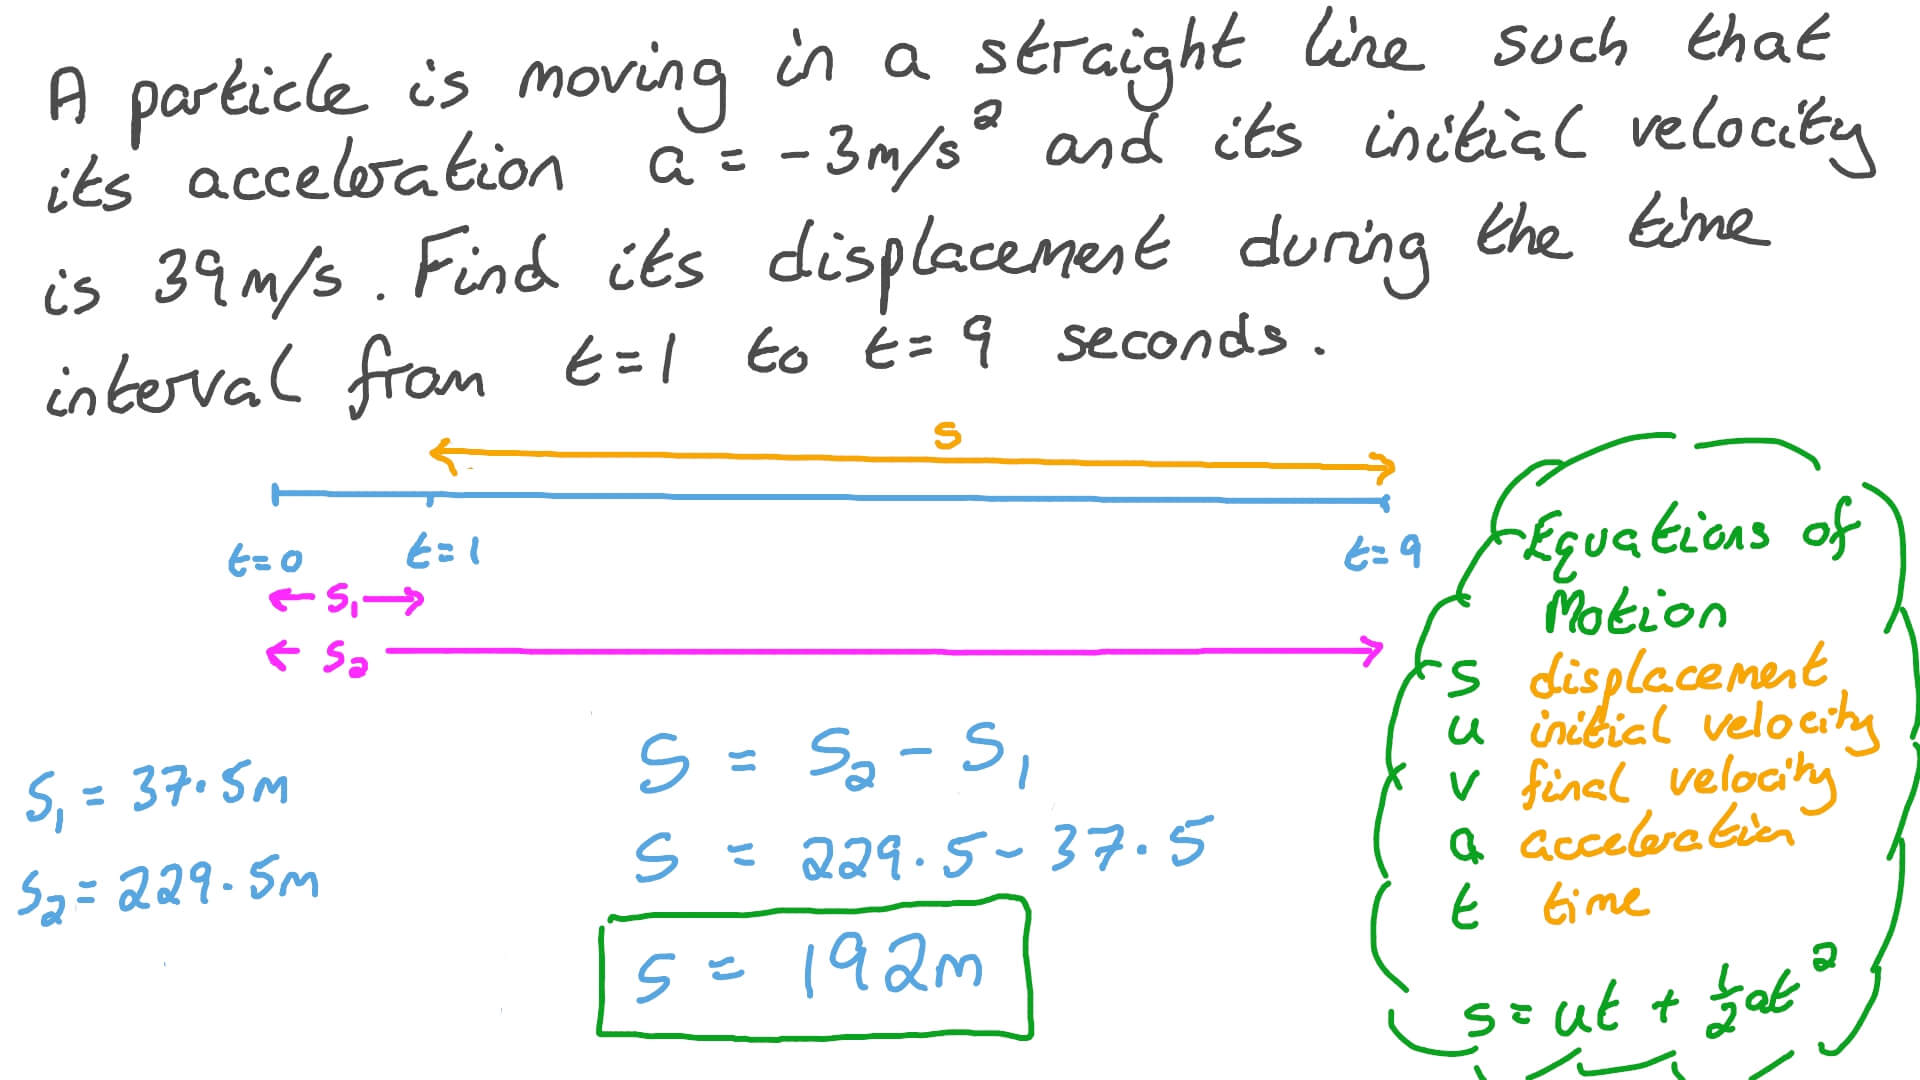 A particle is moving in a straight line such that
its acceleration a = -3m/s² and its initial velocity
is 39m/s. Find its displacement during the time
interval from t=1 to t=9 seconds.
s
t=0 t=1 t=9
s₁
s₂
s₁ = 37.5m
s₂ = 229.5m
s = s₂ - s₁
s = 229.5 - 37.5
s = 192m
Equations of
Motion
s displacement
u initial velocity
v final velocity
a acceleration
t time
s = ut + ½at²